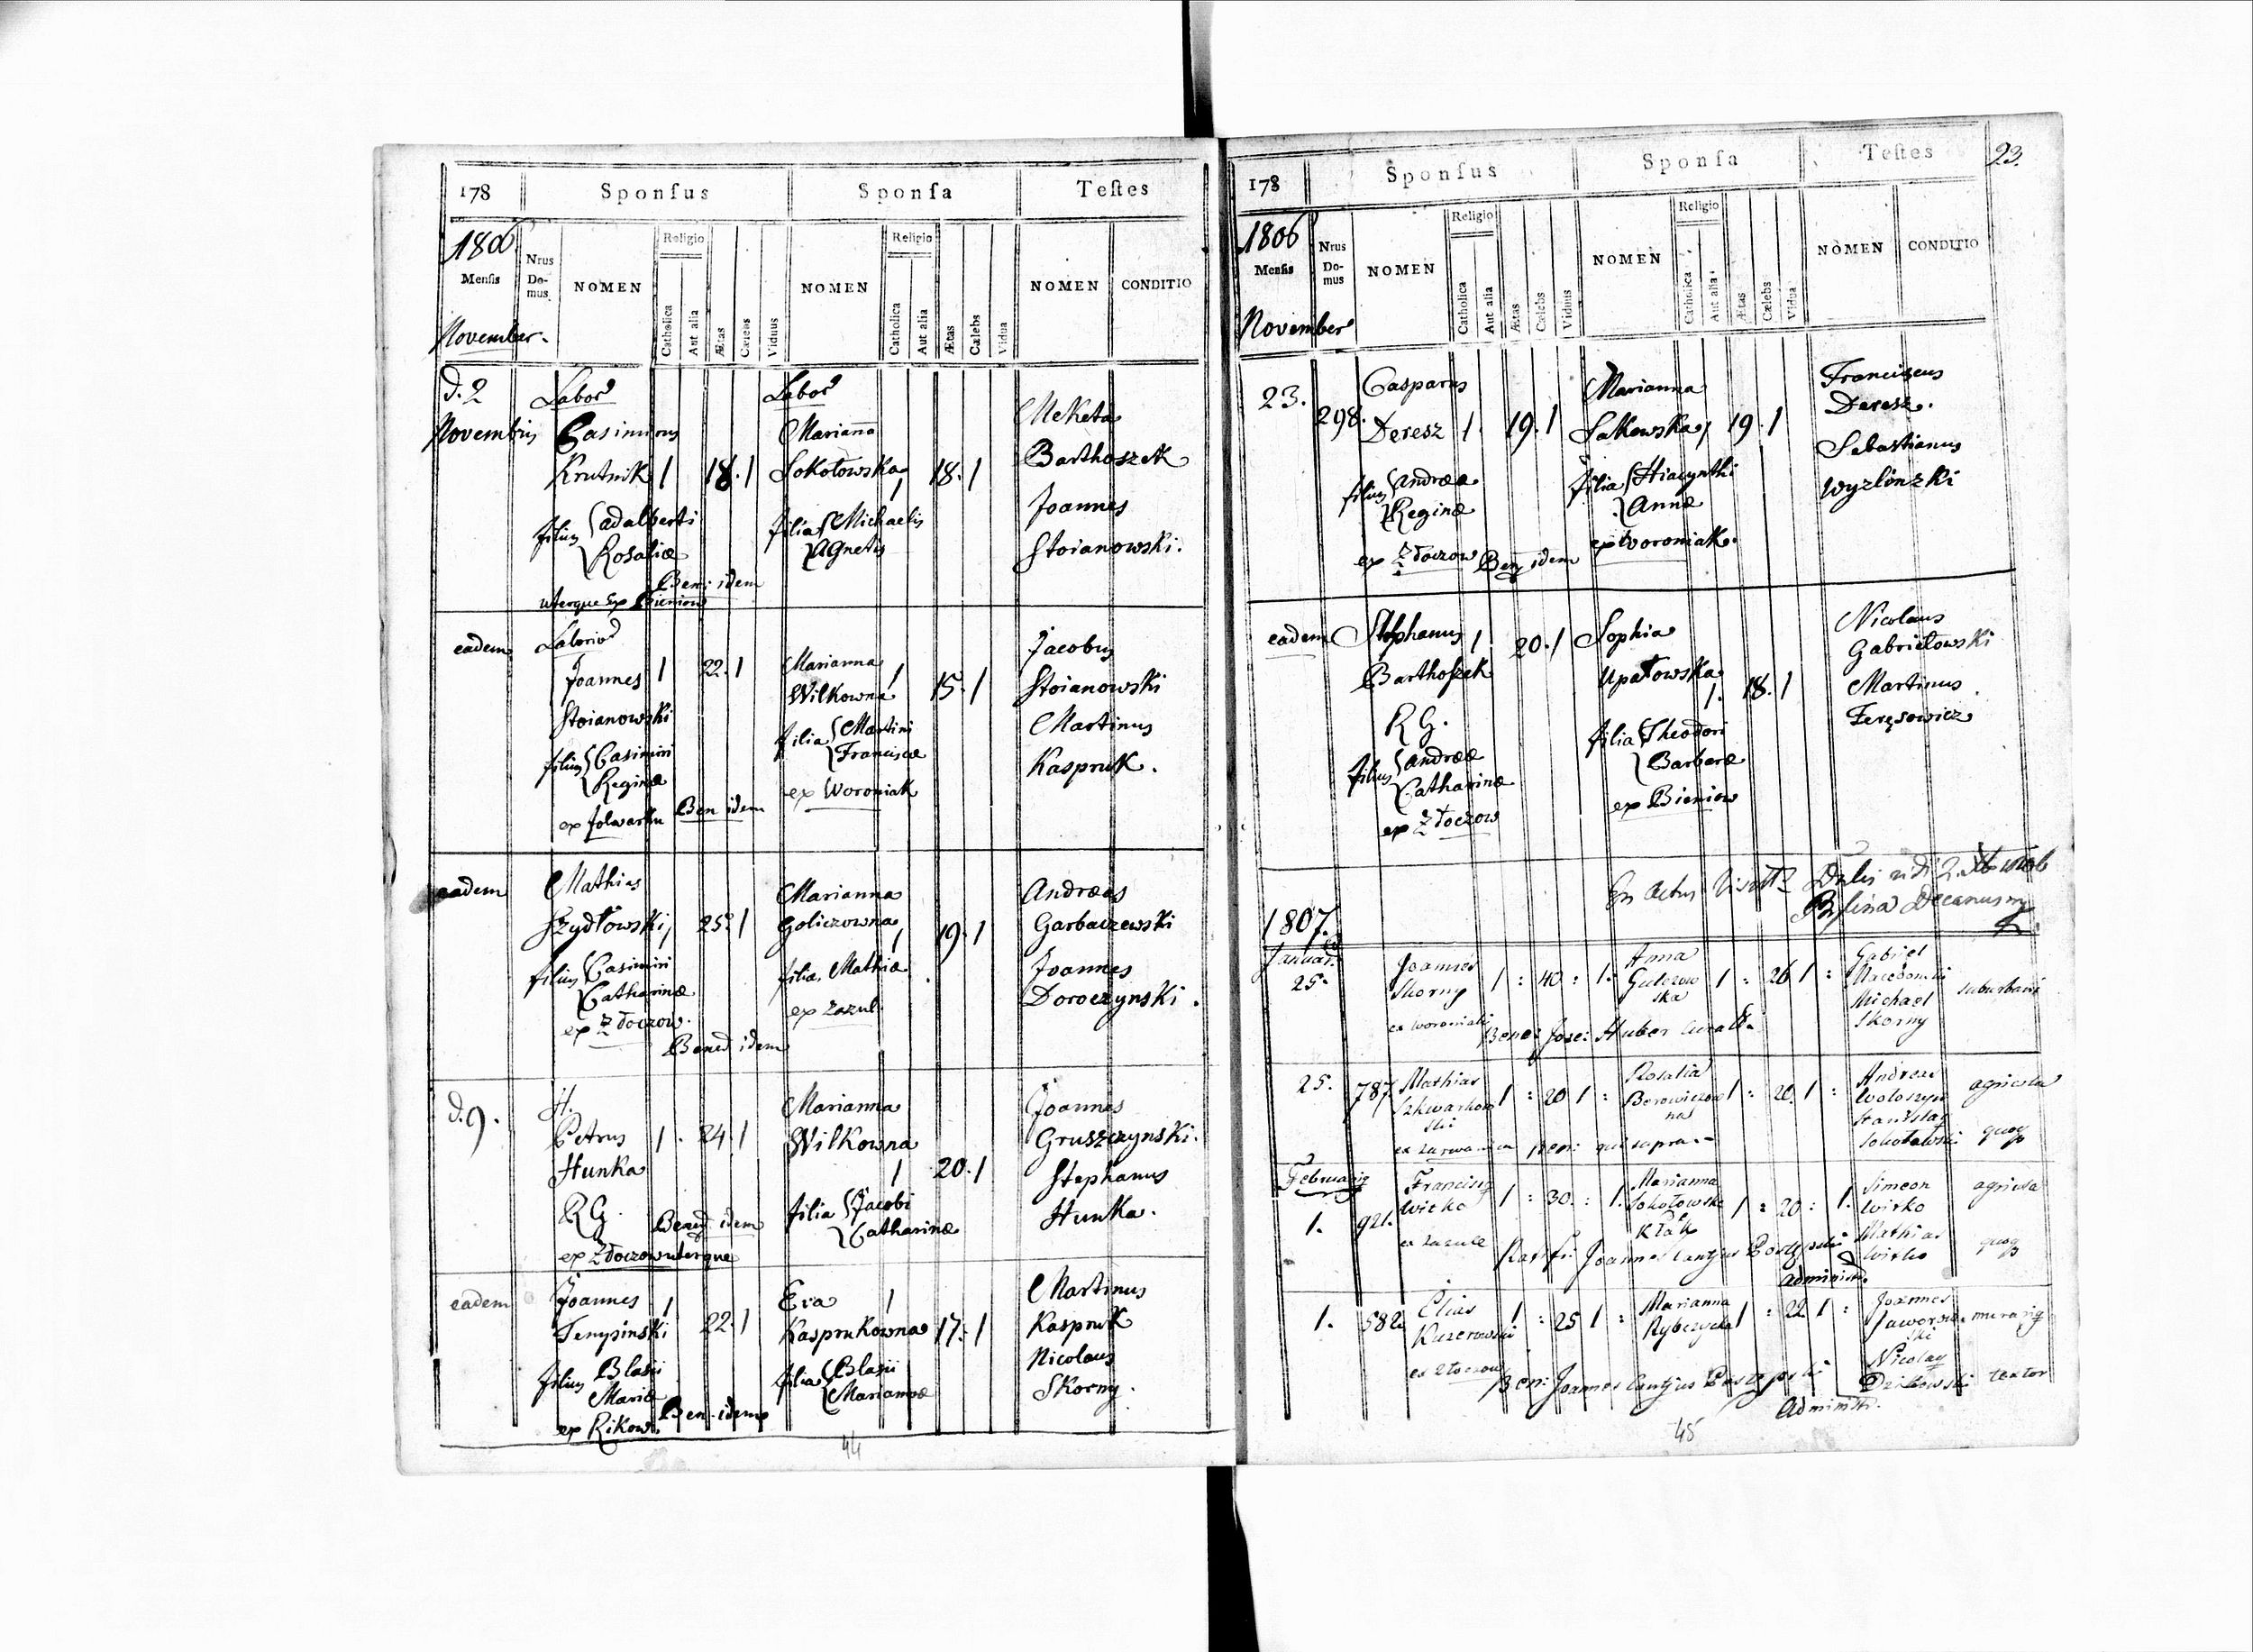 178 Sponsus Sponsa Testes
1806
Mensis Nrus Domus NOMEN Religio Catholica Aut alia Ætas Cælebs Viduus NOMEN Religio Catholica Aut alia Ætas Cælebs Vidua NOMEN CONDITIO
November
d. 2 Labor Labor
Novembris Casimirus Marianna Meketa
Krutnik 1 18. 1 Sokołowska 1 18. 1 Barthoszek
filius Adalberti filia Michaelis Joannes
Rosaliæ Agnetis Stoianowski.
Ben: idem
uterque ex Bieniow
eadem Labor Jacobus
Joannes 1 22. 1 Marianna 1 Stoianowski
Stoianowski Wilkowna 15. 1 Martinus
filius Casimiri filia Martini Kaspruk.
Reginæ Franciscæ
ex folwarku Ben idem ex Woroniak
eadem Mathias Marianna Andreas
Szydłowski 1 25. 1 Goliczowna 1 19. 1 Garbaczewski
filius Casimiri filia Mathiæ Joannes
Catharinæ ex Zazul. Doroczynski.
ex Złoczow.
Bened idem
d. 9. H. Marianna Joannes
Petrus 1. 24. 1 Wilkowna Gruszczynski.
Hunka 1 20. 1 Stephanus
R G. Bened idem filia Jacobi Hunka.
ex Złoczow uterque Catharinæ
eadem Joannes 1 Eva 1 Martinus
22. 1 Kasprukowna 17. 1 Kaspruk
filius Blasii filia Blasii Nicolaus
Mariæ Mariannæ Skorny.
ex Rikow. Ben. idem
44
178 Sponsus Sponsa Testes 23.
1806
Mensis Nrus Domus NOMEN Religio Catholica Aut alia Ætas Cælebs Viduus NOMEN Religio Catholica Aut alia Ætas Cælebs Vidua NOMEN CONDITIO
November
23. Casparus Marianna Franciscus
298. Deresz 1 19. 1 Sakowska 1 19. 1 Deresz.
filius Andreæ filia Hiacynthi Sebastianus
Reginæ Annæ
ex Złoczow Ben idem ex Woroniak.
eadem Stephanus 1 20. 1 Sophia Nicolaus
Barthoszek Upałowska 1. 18. 1 Gabriełowski
R G. Martinus
filius Andreæ filia Theodori
Catharinæ Barbaræ
ex Złoczow ex Bieniow
Decanus
1807.
Januar.
25. Joannes 1 : 40 : 1. Anna 1 : 26 1 : Gabriel
Skorny Michael suburbani
ex Woroniaki Bene: Jose: Huber Skorny
25. 787 Mathias 1 : 20 1 : Rosalia 1 : 20. 1 : Andreas agricola
Stanislaus
Februarius Franciscus 1 : 30. : 1. Marianna 1 : 20 : 1. Simeon agricola
1. 921. Sokołowska
ex Zazule Joannes Cantius Mathias
Administr.
1. 582 Elias 1 : 25 1 : Marianna 1 : 22 1 : Joannes
ex Złoczow Ben: Joannes Cantius textor
Administr.
45